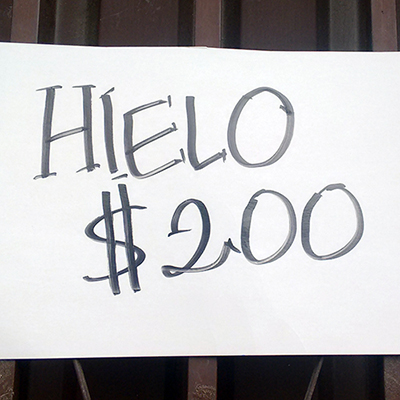 HIELO
$200